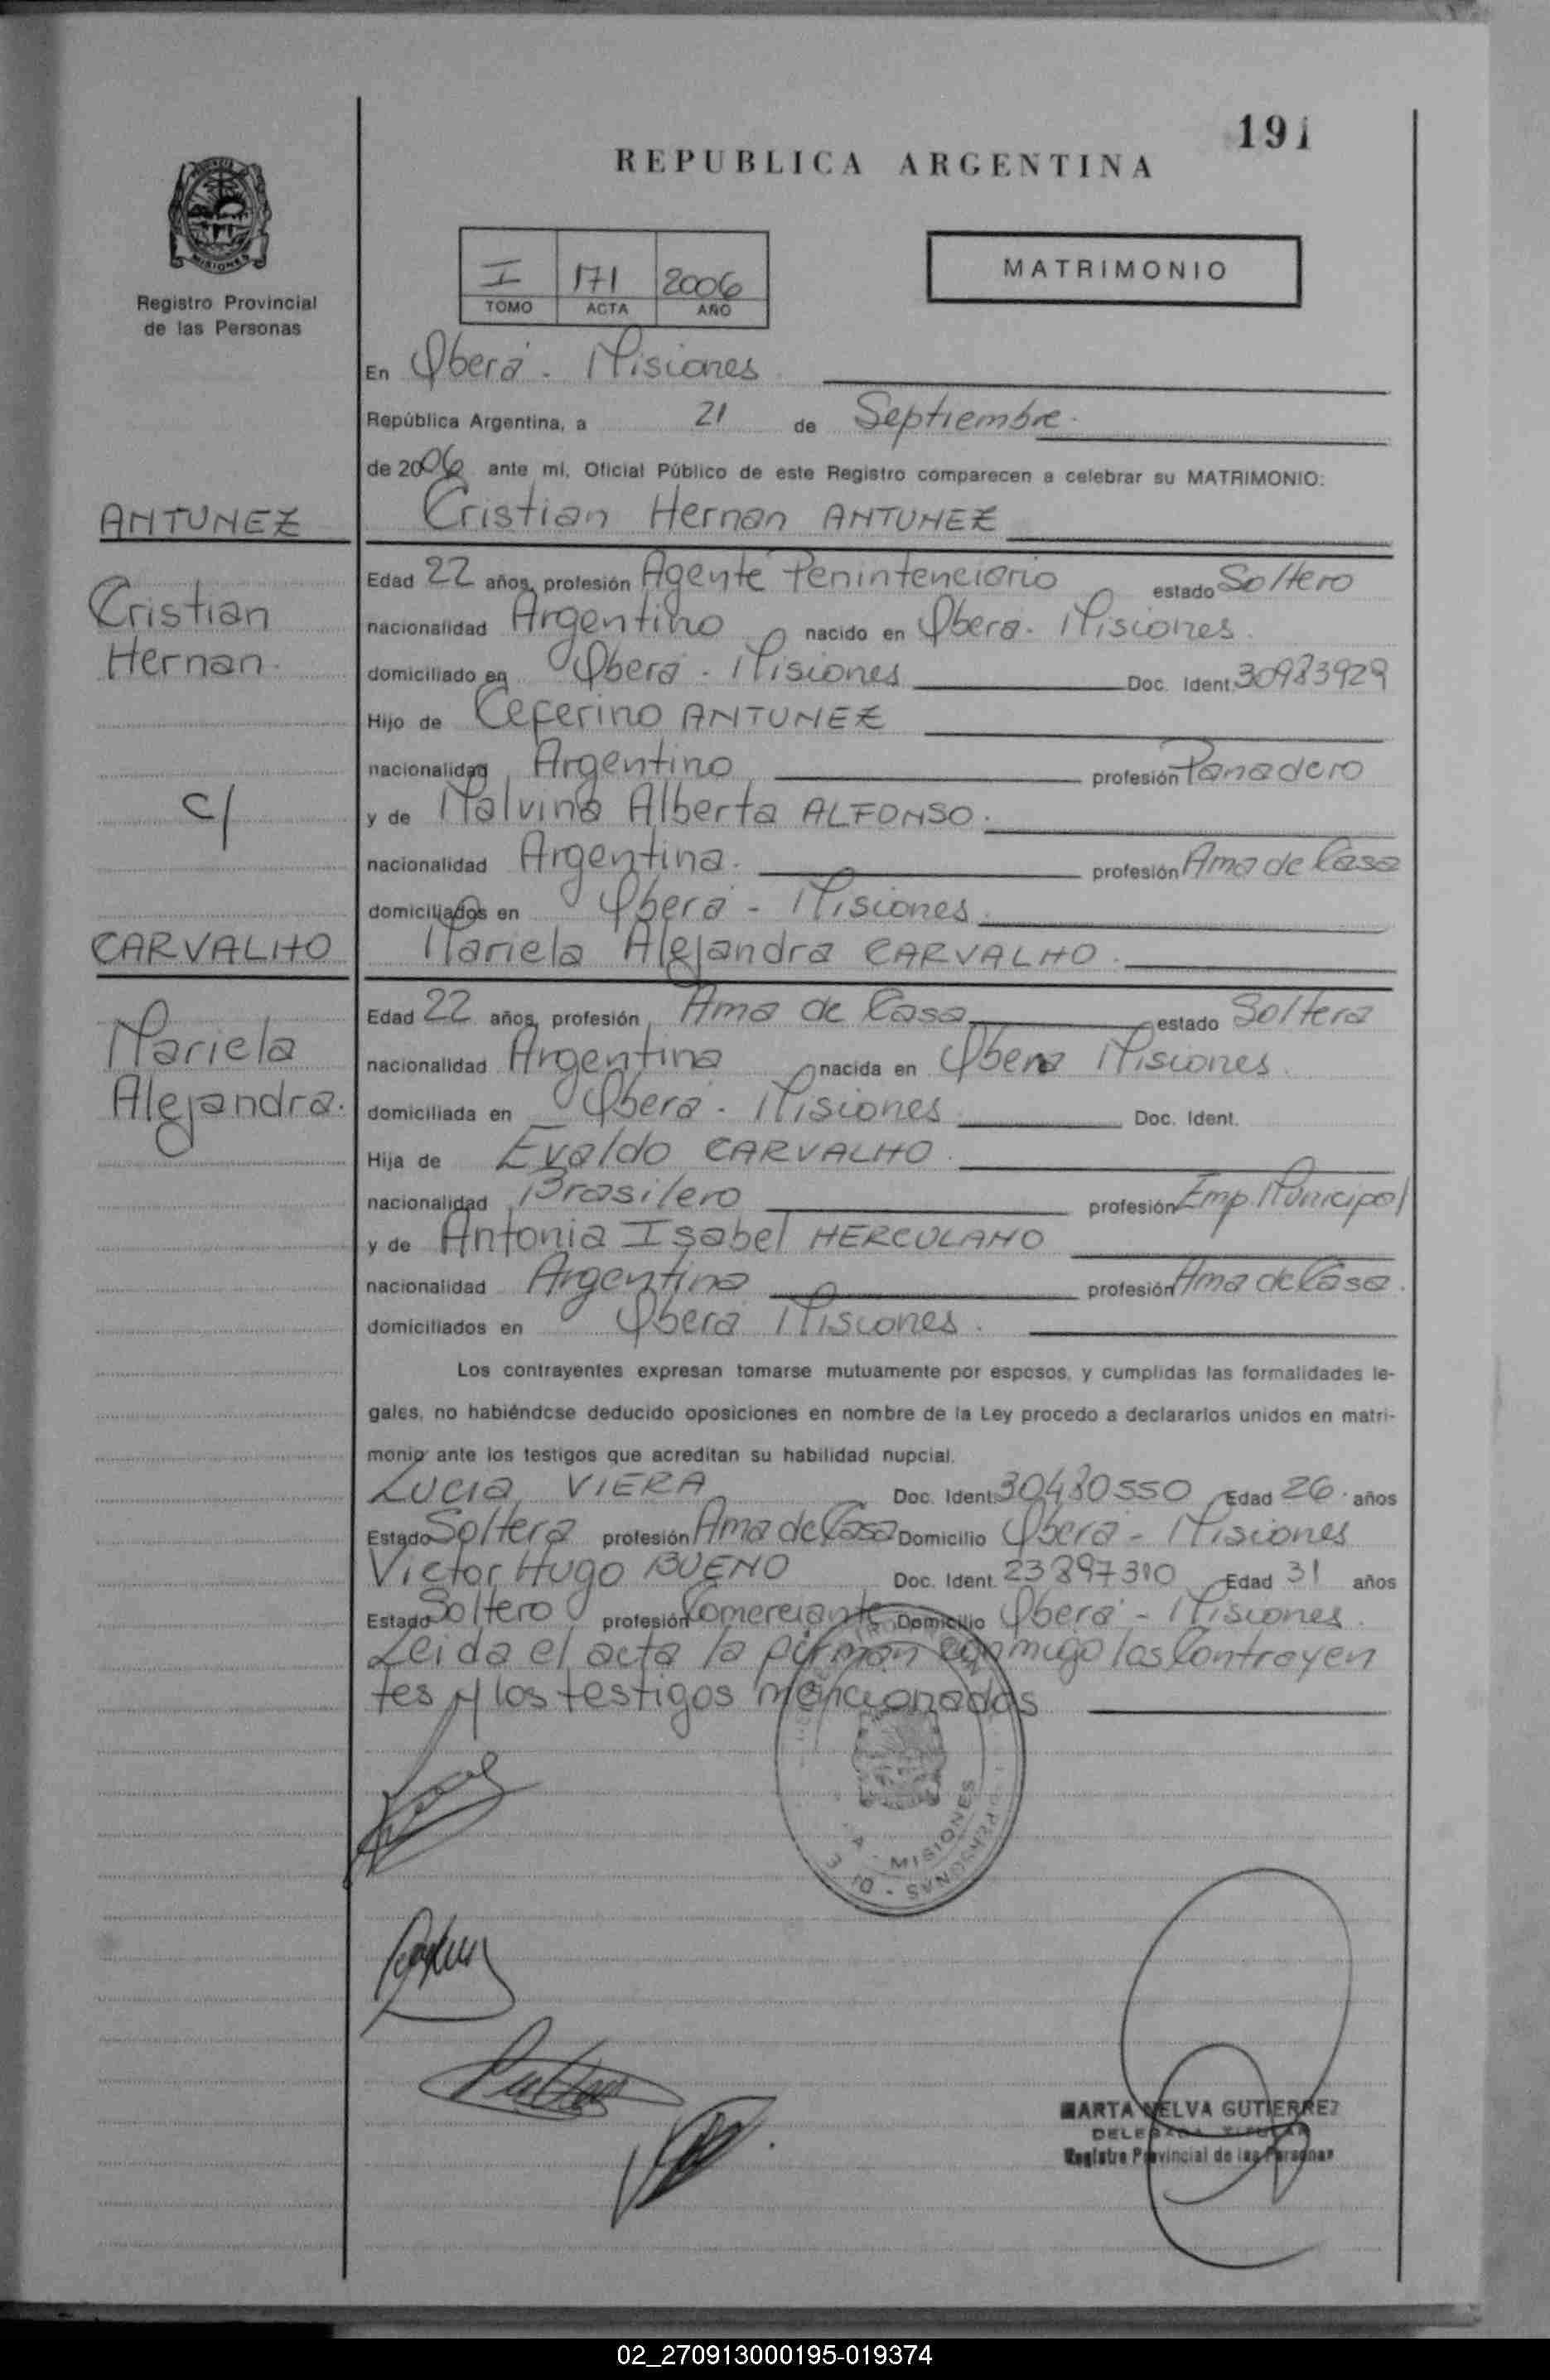 191
REPUBLICA ARGENTINA
MISIONES
Registro Provincial
de las Personas
I 171 2006
TOMO ACTA AÑO
MATRIMONIO
En Oberá - Misiones
República Argentina, a 21 de Septiembre.
de 2006 ante mí, Oficial Público de este Registro comparecen a celebrar su MATRIMONIO:
ANTUNEZ
Cristian
Hernan.
c/
CARVALHO
Mariela
Alejandra.
Cristian Hernan ANTUNEZ
Edad 22 años, profesión Agente Penintenciario estado Soltero
nacionalidad Argentino nacido en Oberá. Misiones.
domiciliado en Oberá - Misiones Doc. Ident. 30983929
Hijo de Ceferino ANTUNEZ
nacionalidad Argentino profesión Panadero
y de Malvina Alberta ALFONSO.
nacionalidad Argentina. profesión Ama de Casa
domiciliados en Oberá - Misiones.
Mariela Alejandra CARVALHO.
Edad 22 años, profesión Ama de Casa estado Soltera
nacionalidad Argentina nacida en Obera Misiones.
domiciliada en Oberá - Misiones Doc. Ident.
Hija de Evaldo CARVALHO.
nacionalidad Brasilero profesión Emp. Municipal
y de Antonia Isabel HERCULANO
nacionalidad Argentina profesión Ama de Casa.
domiciliados en Oberá Misiones.
Los contrayentes expresan tomarse mutuamente por esposos, y cumplidas las formalidades le-
gales, no habiéndose deducido oposiciones en nombre de la Ley procedo a declararlos unidos en matri-
monio ante los testigos que acreditan su habilidad nupcial.
Lucia VIERA Doc. Ident. 30480550 Edad 26. años
Estado Soltera profesión Ama de Casa Domicilio Oberá - Misiones
Victor Hugo BUENO Doc. Ident. 23897310 Edad 31 años
Estado Soltero profesión Comerciante Domicilio Oberá - Misiones.
Leida el acta la firman conmigo los Contrayen
tes y los testigos mencionados
MISIONES
PERSONAS
MARTA NELVA GUTIERREZ
DELEGADA TITULAR
Registro Provincial de las Personas
02_270913000195-019374